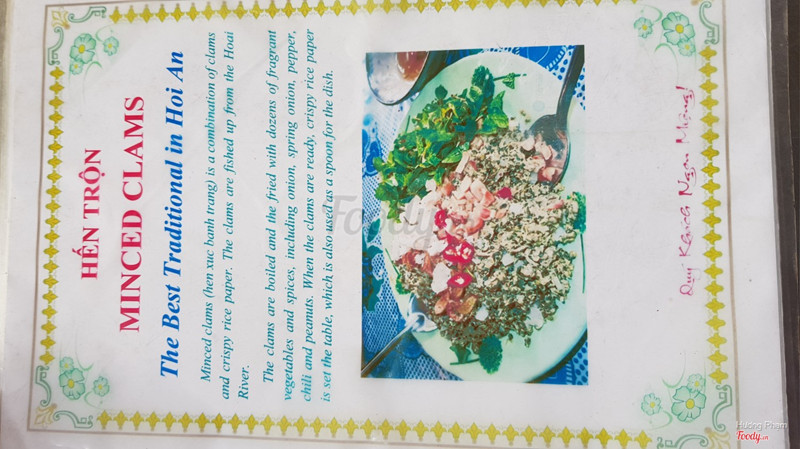 HẾN TRỘN
MINCED CLAMS
The Best Traditional in Hoi An
Minced clams (hen xuc banh trang) is a combination of clams
and crispy rice paper. The clams are fished up from the Hoai
River.
The clams are boiled and the fried with dozens of fragrant
vegetables and spices, including onion, spring onion, pepper,
chili and peanuts. When the clams are ready, crispy rice paper
is set the table, which is also used as a spoon for the dish.
Foody
Quý Khách Ngon Miệng!
Hương Phạm
Foody.vn